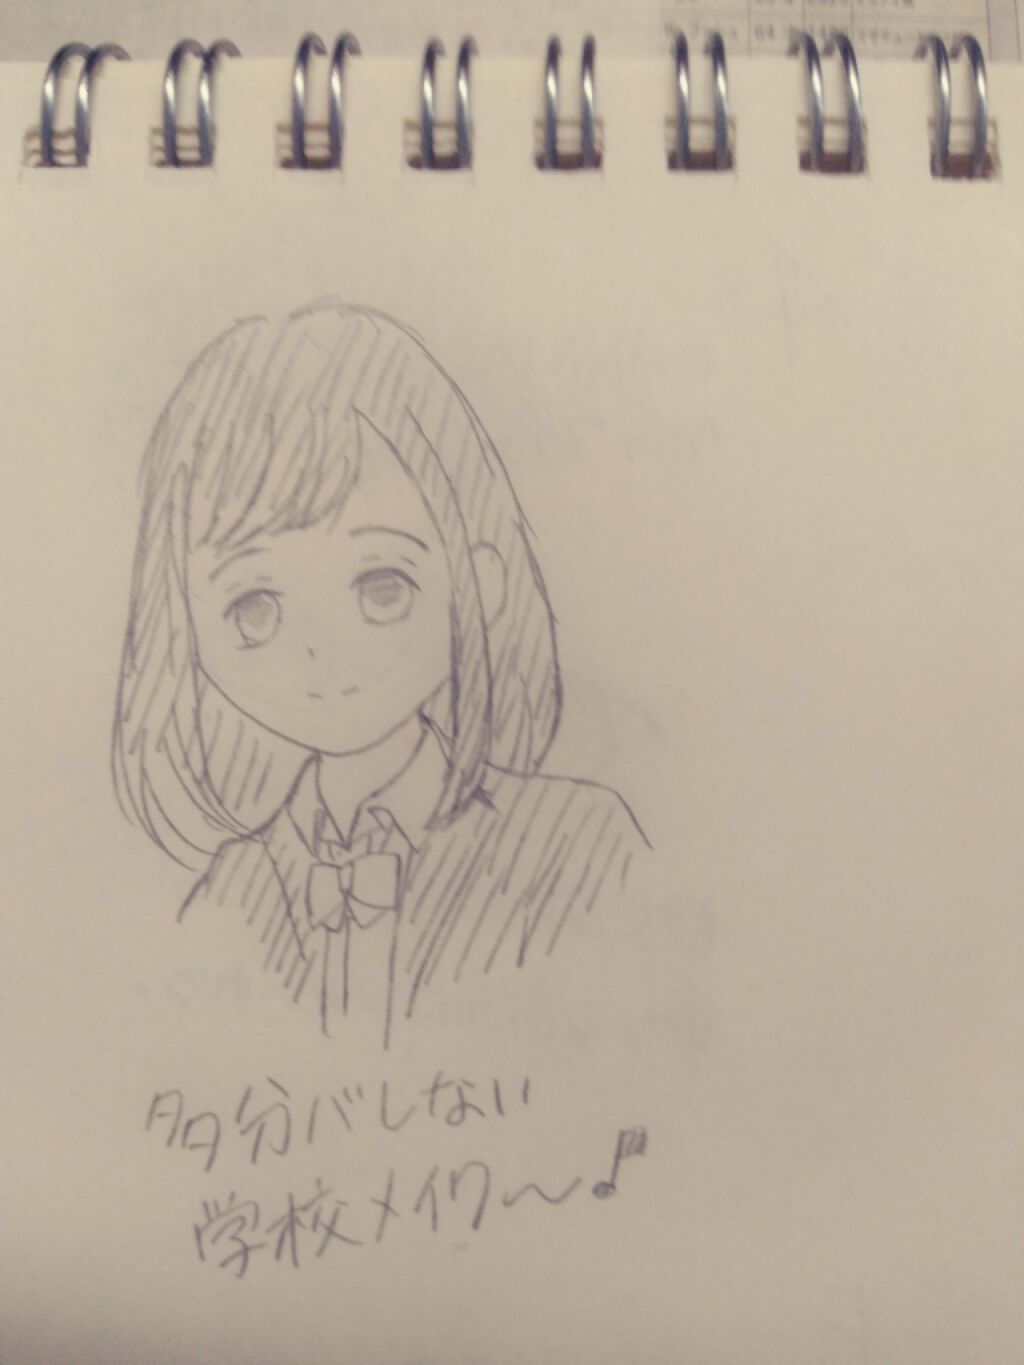 多分バレない
学校メイク〜♪